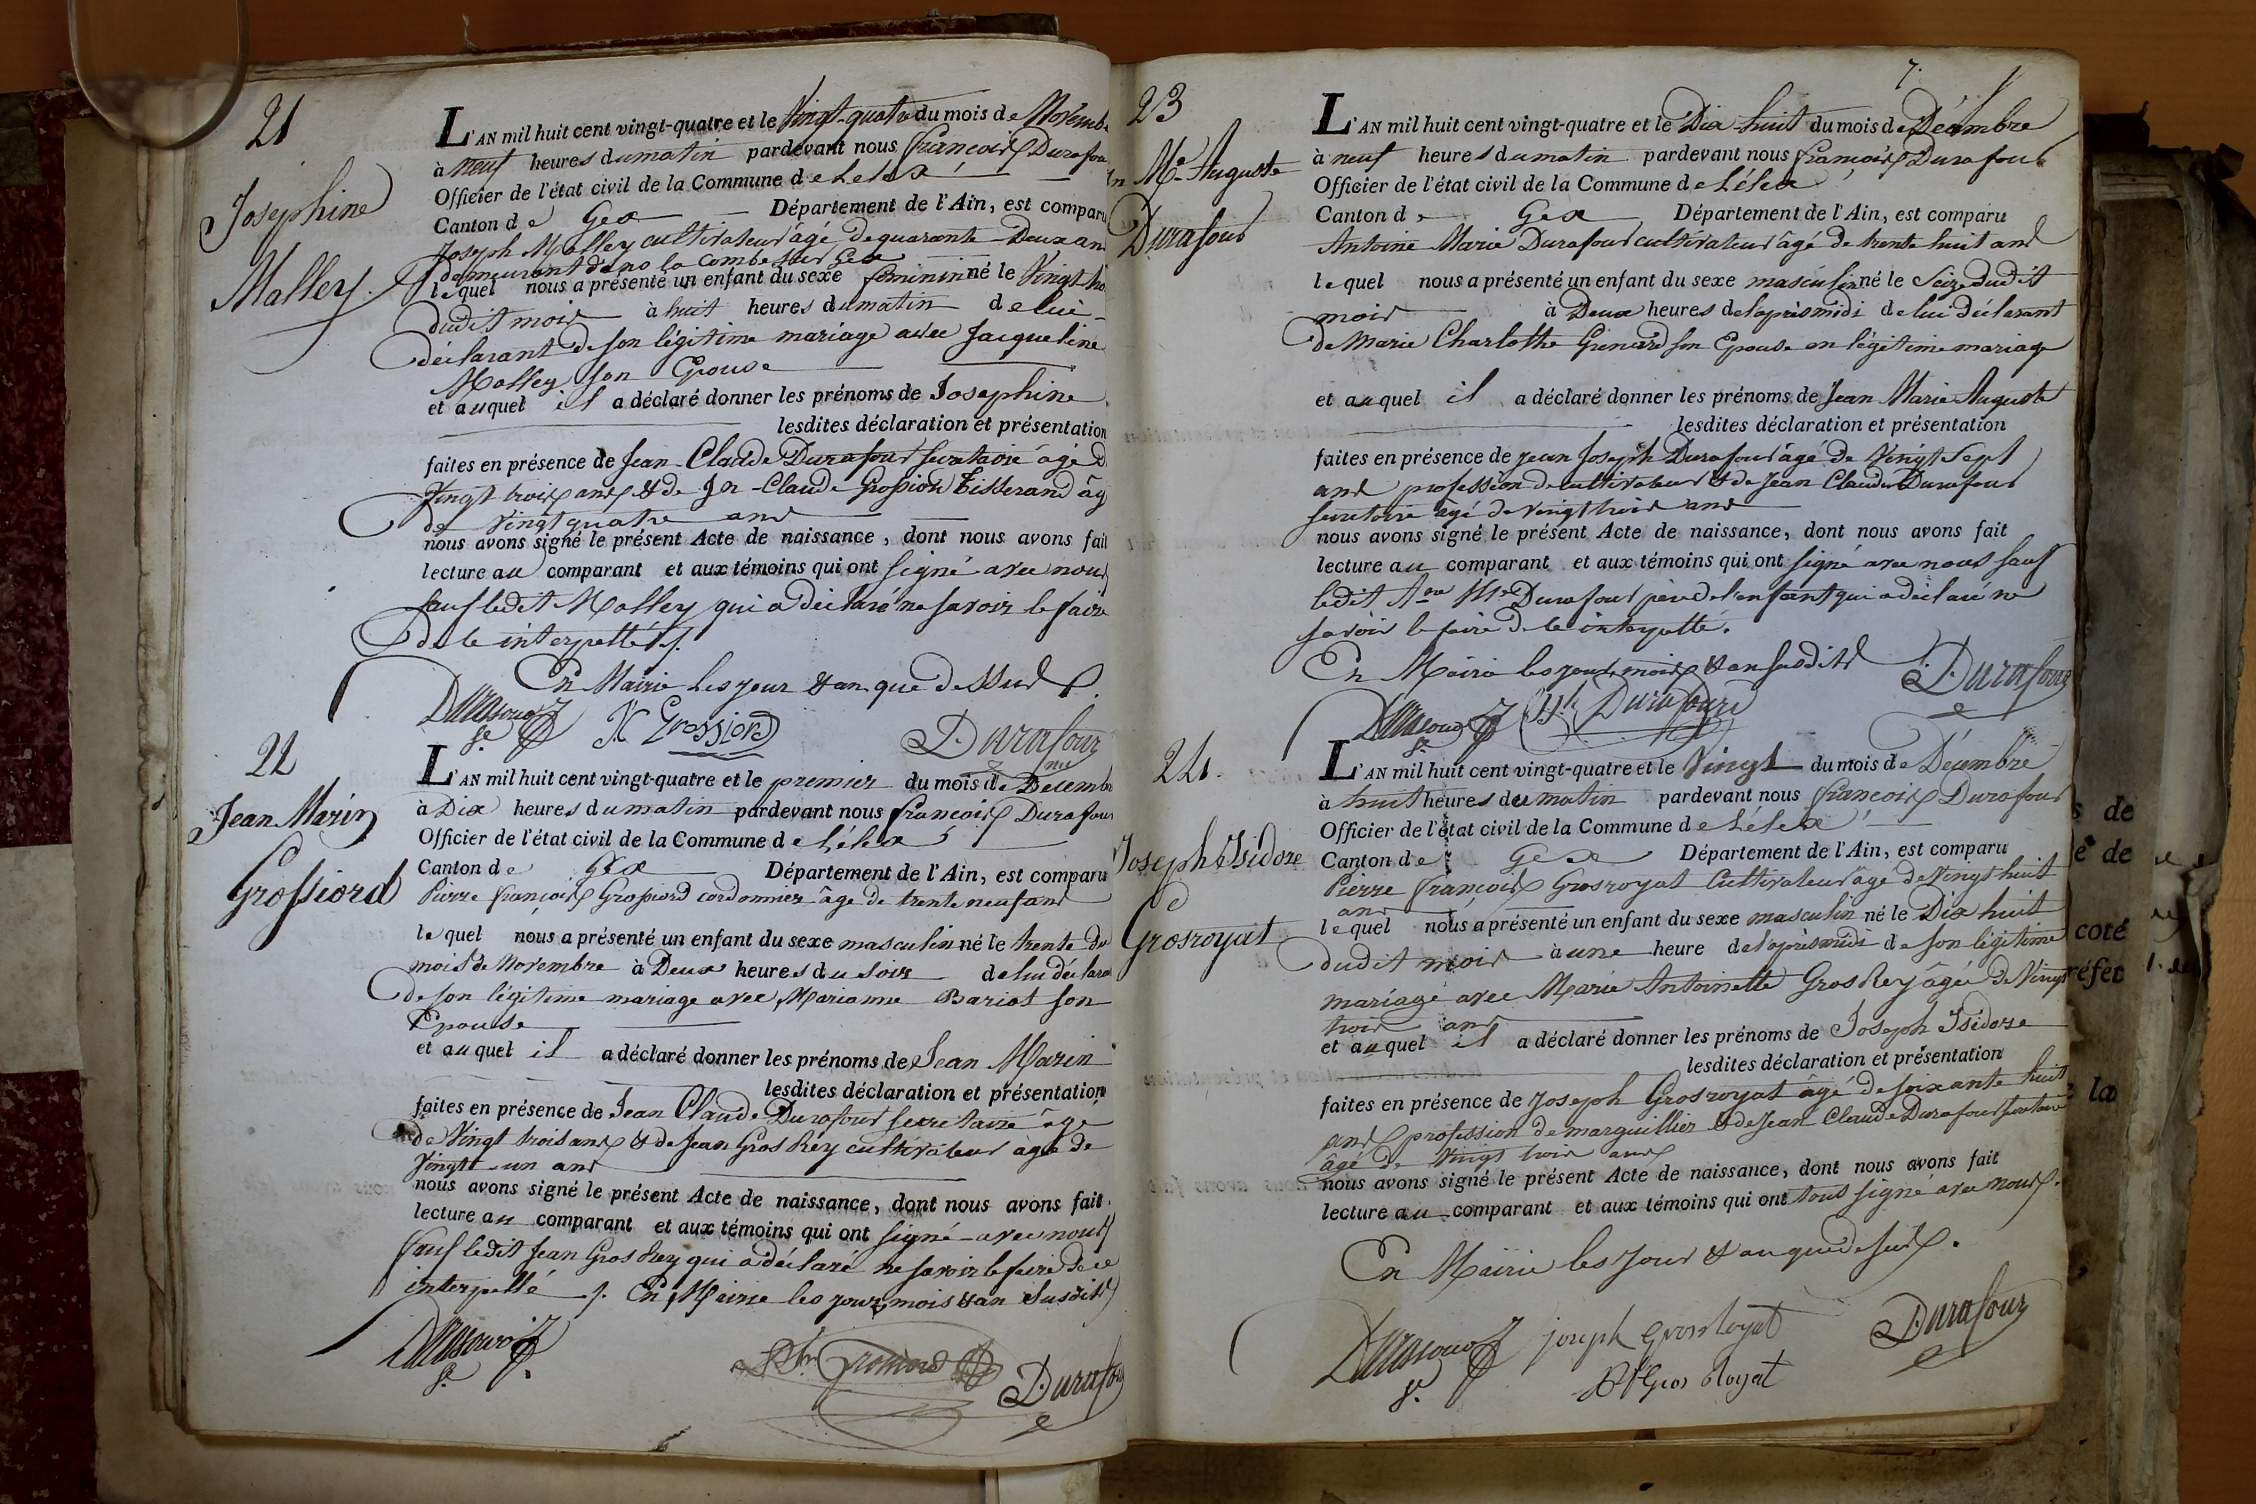 21
Josephine
Malley
L'AN mil huit cent vingt-quatre et le Vingt-quatre du mois de Novemb
à neuf heures du matin pardevant nous François Durafour
Officier de l'état civil de la Commune de Lélex
Canton de Gex Département de l'Ain, est comparu
Joseph Malley cultivateur âgé de quarante-Deux ans
demeurant dans la Combe sur Gex
lequel nous a présenté un enfant du sexe féminin né le Vingt
dudit mois à huit heures du matin de lui
déclarant de son légitime mariage avec Jacqueline
Malley son Epouse
et auquel il a déclaré donner les prénoms de Josephine
lesdites déclaration et présentation
faites en présence de Jean-Claude Durafour secretaire âgé D
Vingt trois ans & de Jn-Claude Grossiord Tisserand âg
de vingt quatre ans
nous avons signé le présent Acte de naissance, dont nous avons fait
lecture au comparant et aux témoins qui ont signé avec nous
sauf ledit Malley qui a déclaré ne savoir le faire
De ce interpellé ./.
En Mairie les jour & an que dessus
Durafour
se
JC Grossiord
Durafour
me
22
Jean Marin
Grossiord
L'AN mil huit cent vingt-quatre et le premier du mois de Decembre
à Dix heures du matin pardevant nous François Durafour
Officier de l'état civil de la Commune de Lélex
Canton de Gex Département de l'Ain, est comparu
Pierre François Grossiord cordonnier âgé de trente neuf ans
lequel nous a présenté un enfant du sexe masculin né le trente du
mois de Novembre à Deux heures du soir de lui déclarant
de son légitime mariage avec Marianne Bariot son
Epouse
et auquel il a déclaré donner les prénoms de Jean Marin
lesdites déclaration et présentation
faites en présence de Jean Claude Durafour secretaire âgé
de Vingt trois ans & de Jean Gros Rey cultivateur âgé de
Vingt-un ans
nous avons signé le présent Acte de naissance, dont nous avons fait
lecture au comparant et aux témoins qui ont signé avec nous
sauf ledit Jean Gros Rey qui a déclaré ne savoir le faire de ce
interpellé ./. En Mairie les jour, mois & an susdits
Durafour
se
Grossiord
Durafour
23
Jn Me Auguste
Durafour
7.
L'AN mil huit cent vingt-quatre et le Dix-huit du mois de Décembre
à neuf heures du matin pardevant nous François Durafour
Officier de l'état civil de la Commune de Lélex
Canton de Gex Département de l'Ain, est comparu
Antoine Marie Durafour cultivateur âgé de trente huit ans
lequel nous a présenté un enfant du sexe masculin né le Seize dudit
mois à Deux heures de l'après midi de lui déclarant
de Marie Charlotte Grenard son Epouse en légitime mariage
et auquel il a déclaré donner les prénoms de Jean Marie Auguste
lesdites déclaration et présentation
faites en présence de Jean Joseph Durafour âgé de Vingt Sept
ans profession de cultivateur & de Jean Claude Durafour
secretaire âgé de vingt trois ans
nous avons signé le présent Acte de naissance, dont nous avons fait
lecture au comparant et aux témoins qui ont signé avec nous sauf
ledit Ane Mie Durafour père de l'enfant qui a déclaré ne
savoir le faire de ce interpellé.
En Mairie les jour, mois & an susdits
Durafour
Durafour
se
Jh Durafour
24.
Joseph Isidore
Grosroyat
L'AN mil huit cent vingt-quatre et le Vingt du mois de Décembre
à huit heures du matin pardevant nous François Durafour
Officier de l'état civil de la Commune de Lélex
Canton de Gex Département de l'Ain, est comparu
Pierre François Grosroyat Cultivateur âgé de Vingt huit
ans
lequel nous a présenté un enfant du sexe masculin né le Dix huit
dudit mois à une heure de l'après midi de son légitime
mariage avec Marie Antoinette Gros Rey âgée de Vingt
trois ans
et auquel il a déclaré donner les prénoms de Joseph Isidore
lesdites déclaration et présentation
faites en présence de Joseph Grosroyat âgé de soixante huit
ans profession de marguillier & de Jean Claude Durafour secretaire
âgé de vingt trois ans
nous avons signé le présent Acte de naissance, dont nous avons fait
lecture au comparant et aux témoins qui ont tous signé avec nous.
En Mairie les jour & an que dessus.
Durafour
se
joseph grosroyat
Gros Royat
Durafour
s de
e de
coté
réfet
la